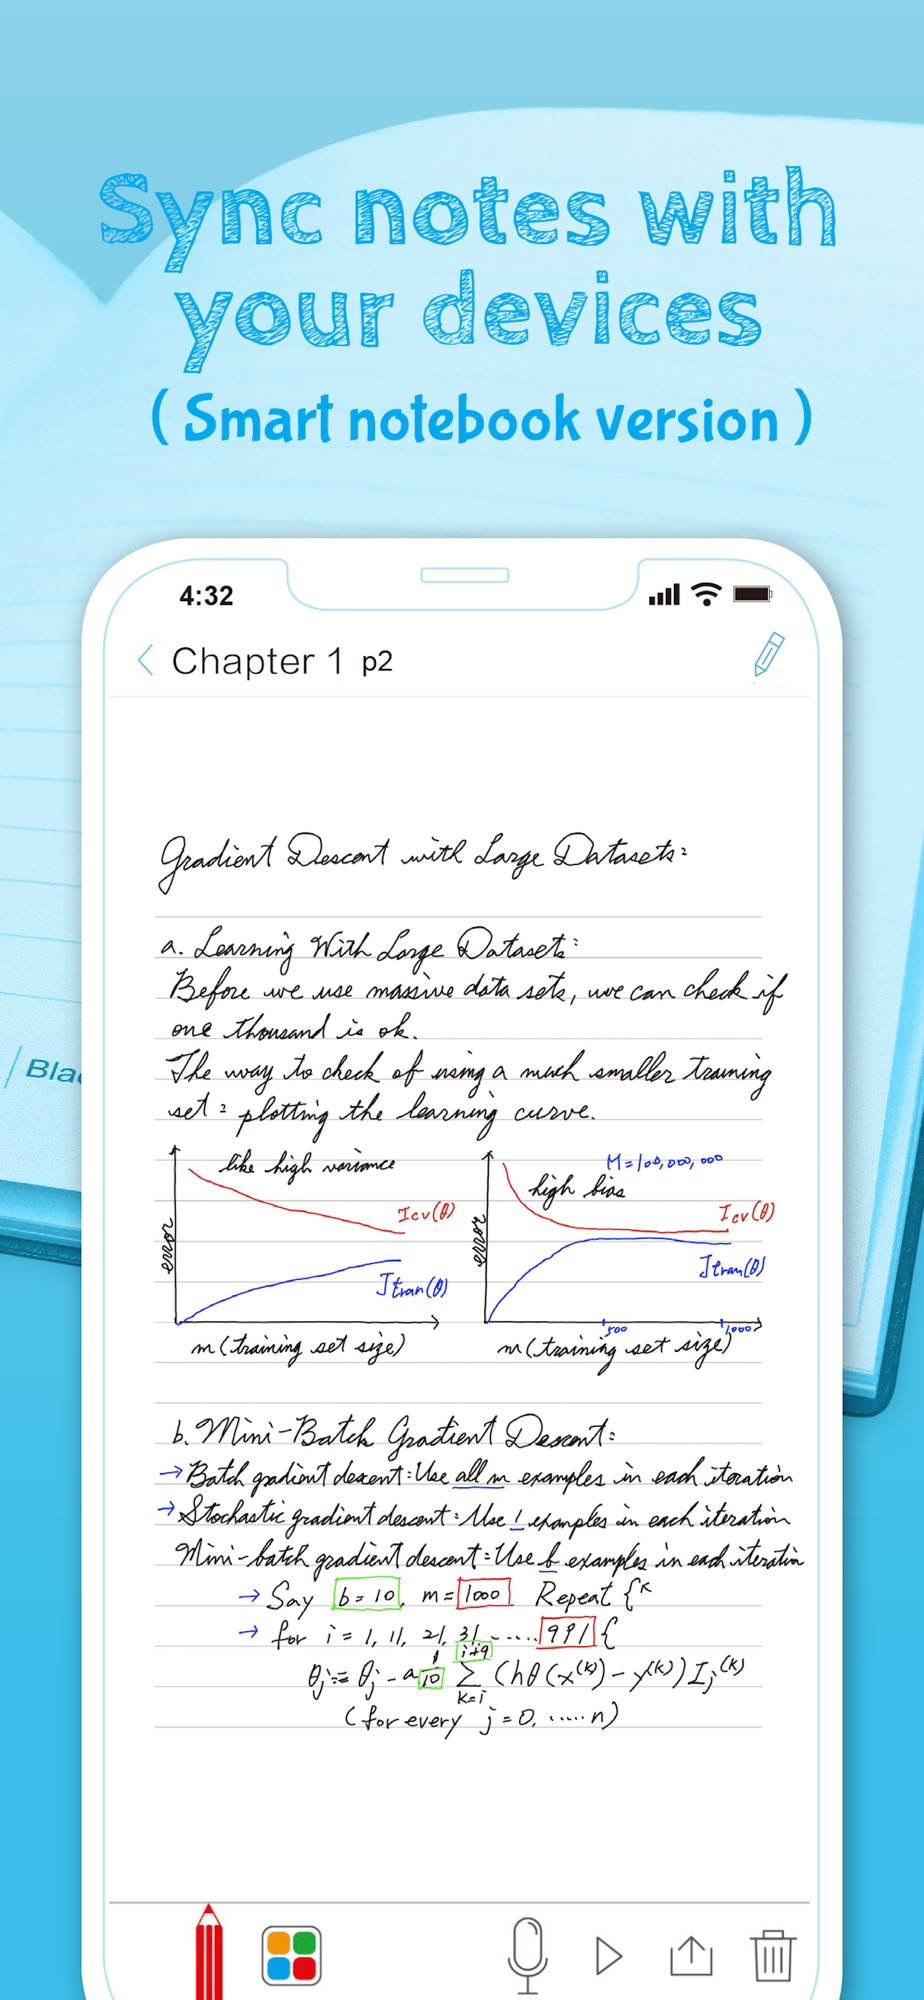 Sync notes with
your devices
( Smart notebook version )
4:32
Chapter 1 p2
Gradient Descent with Large Datasets:
a. Learning With Large Datasets:
Before we use massive data sets, we can check if
one thousand is ok.
The way to check of using a much smaller training
set: plotting the learning curve.
like high variance
error
Jcv(θ)
Jtran(θ)
m (training set size)
M=100,000,000
high bias
error
Jcv(θ)
Jtran(θ)
500
1000
m (training set size)
b. Mini-Batch Gradient Descent:
→ Batch gradient descent: Use all m examples in each iteration
→ Stochastic gradient descent: Use 1 examples in each iteration
Mini-batch gradient descent: Use b examples in each iteratin
→ Say b = 10, m = 1000 Repeat {
→ for i = 1, 11, 21, 31, ..... 991 {
θj := θj - a 1/10 Σ k=i i+9 (hθ(x(k)) - y(k)) Ij(k)
(for every j = 0, ..... n)
Bla